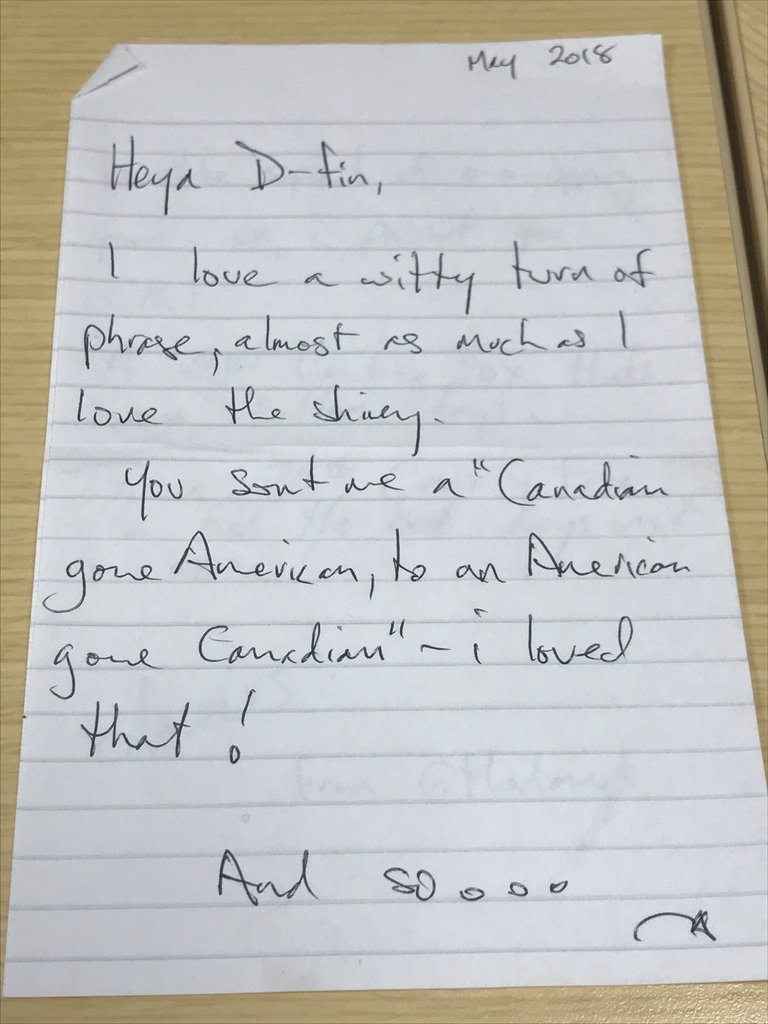 May 2018
Heya D-fin,
I love a witty turn of
phrase, almost as much as I
love the shiney.
You sent me a "Canadian
gone American, to an American
gone Canadian" ~ i loved
that!
And so....